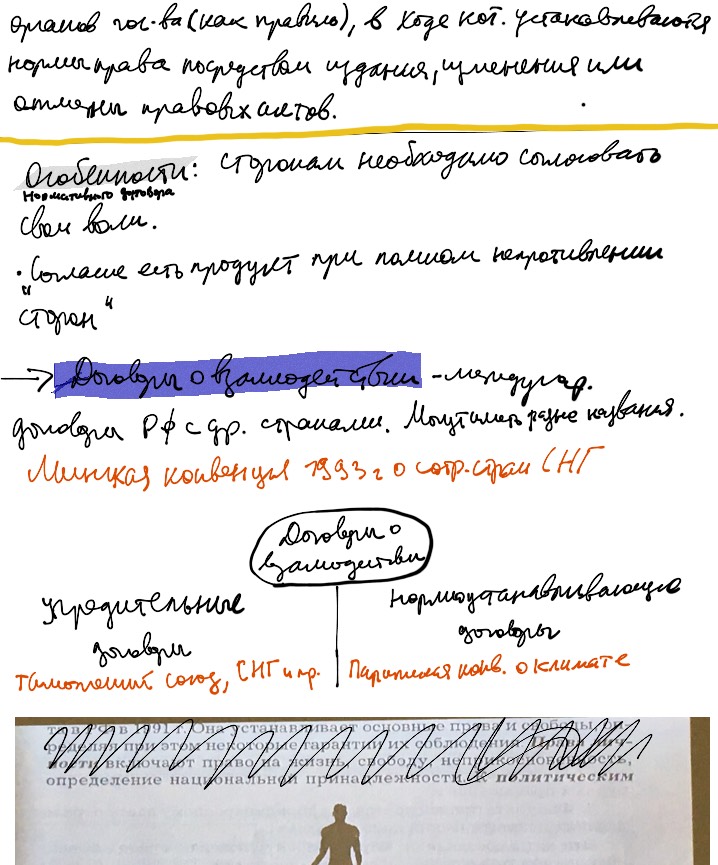 органов гос-ва (как правило), в ходе кот. устанавливаются
нормы права посредством издания, изменения или
отмены правовых актов.
Особенности: сторонам необходимо согласовать
Нормативного договора
свои воли.
· "Согласие есть продукт при полном непротивлении
сторон"
→ Договоры о взаимодействии - междунар.
договоры РФ с др. странами. Могут иметь разные названия.
Минская конвенция 1993 г о сотр. стран СНГ
Договоры о
взаимодействии
Учредительные
договоры
Таможенный союз, СНГ и пр.
Нормоустанавливающие
договоры
Парижская конв. о климате
в 1991 г. Она устанавливает основные права и свободы, оп-
ределяя при этом некоторые гарантии их соблюдения. Права лич-
ности включают право на жизнь, свободу, неприкосновенность,
определение национальной принадлежности. К политическим